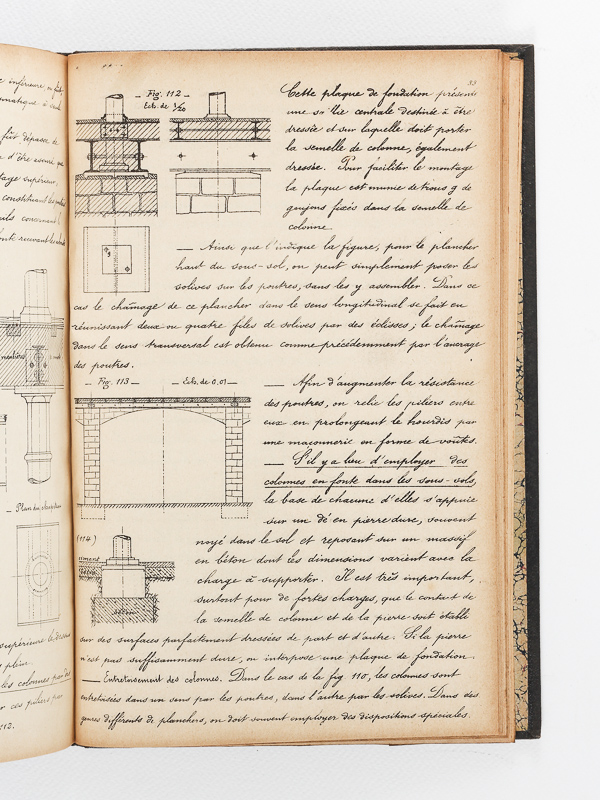 e inférieure, en fonte,
matique à
fût dépasse de
n d'être assuré que
tage supérieur,
constituent les
ls concernant
fonte suivant les
83
Fig. 112
Ech. de 1/20
Cette plaque de fondation présente
une saillie centrale destinée à être
dressée et sur laquelle doit porter
la semelle de colonne, également
dressée. Pour faciliter le montage
la plaque est munie de trous g de
goujons fixés dans la semelle de
colonne.
— Ainsi que l'indique la figure, pour le plancher
haut du sous-sol, on peut simplement poser les
solives sur les poutres, sans les y assembler. Dans ce
cas le chaînage de ce plancher dans le sens longitudinal se fait en
réunissant deux ou quatre files de solives par des éclisses ; le chaînage
dans le sens transversal est obtenu comme précédemment par l'ancrage
des poutres.
— Fig. 113 — — Ech. de 0,01 —
— Afin d'augmenter la résistance
des poutres, on relie les piliers entre
eux en prolongeant le hourdis par
une maçonnerie en forme de voûtes.
— S'il y a lieu d'employer des
colonnes en fonte dans les sous-sols,
la base de chacune d'elles s'appuie
sur un dé en pierre dure, souvent
114)
noyé dans le sol et reposant sur un massif
en béton dont les dimensions varient avec la
charge à supporter. Il est très important,
surtout pour de fortes charges, que le contact de
la semelle de colonne et de la pierre soit établi
sur des surfaces parfaitement dressées de part et d'autre. Si la pierre
n'est pas suffisamment dure, on interpose une plaque de fondation.
— Entretoisement des colonnes. Dans le cas de la fig 110, les colonnes sont
entretoisées dans un sens par les poutres, dans l'autre par les solives. Dans des
genres différents de planchers, on doit souvent employer des dispositions spéciales.
béton
— Plan du
supérieure le dessus
plein.
les colonnes par des
ces piliers par
112.